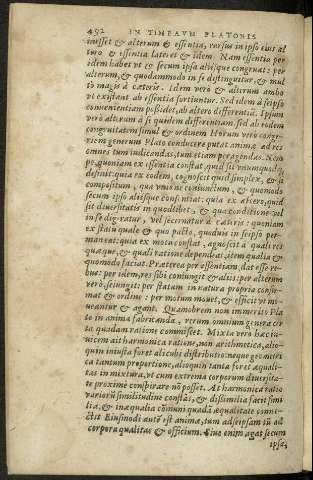 492 IN TIMEAVM PLATONIS
inesset & alterum & essentia, rursus in ipso eius al
tero & essentia lateret & idem. Nam essentia per
idem habet vt & secum ipsa aliisque congruat: per
alterum, & quodammodo in se distinguitur, & mul
to magis à cæteris. Idem verò & alterum ambo
vt existant ab essentia sortiuntur. Sed idem à se ipso
conuenientiam possidet, ab altero differentiã. Ipsum
verò alterum à se quidem differentiam, sed ab eodem
congruitatem simul & ordinem. Horum verò congre
riem generum Plato conducere putat animæ ad res
omnes tum iudicandas, tum etiam peragendas. Nem
pe quoniam ex essentia constat, quid sit vnumquodq;
definit: quia ex eodem, cognoscit quid simplex, & si
compositum, qua vnionis coniunctum, & quomodo
secum ipso aliisque consentiat: quia ex altero, quid
sit diuersitatis in quolibet, & qua conditione vel
in se digeratur, vel secernatur à cæteris: quoniam
ex statu quale & quo pacto, quiduis in seipso per
maneat: quia ex motu constat, agnoscit à quali res
quæque, & quali ratione dependeat, item qualia &
quomodo faciat. Præterea per essentiam, dat esse re
bus: per idem, res sibi coniungit & aliis: per alterum
verò, seiungit: per statum in natura propria confir
mat & ordine: per motum mouet, & efficit vt mo
ueantur & agant. Quamobrem non immeritò Pla
to in anima fabricanda, rerum omnium genera cer
ta quadam ratione commiscet. Mixta verò hæc in
uicem ait harmonica ratione, non arithmetica, alio-
quin iniusta foret alicubi distributio: neque geometri
ca tantum proportione, alioquin tanta foret æquali-
tas in mixtura, vt cum extrema corporum diuersita-
te proximè conspirare nõ posset. At harmonica ratio
variorũ similitudine constãs, & dissimilia facit simi
lia, & inæqualia cõmuni quadã æqualitate conne-
ctit Eiusmodi autẽ est anima, tum ad seipsam tũ ad
corpora qualitas & officium. Siue enim agat secum
ipsa,